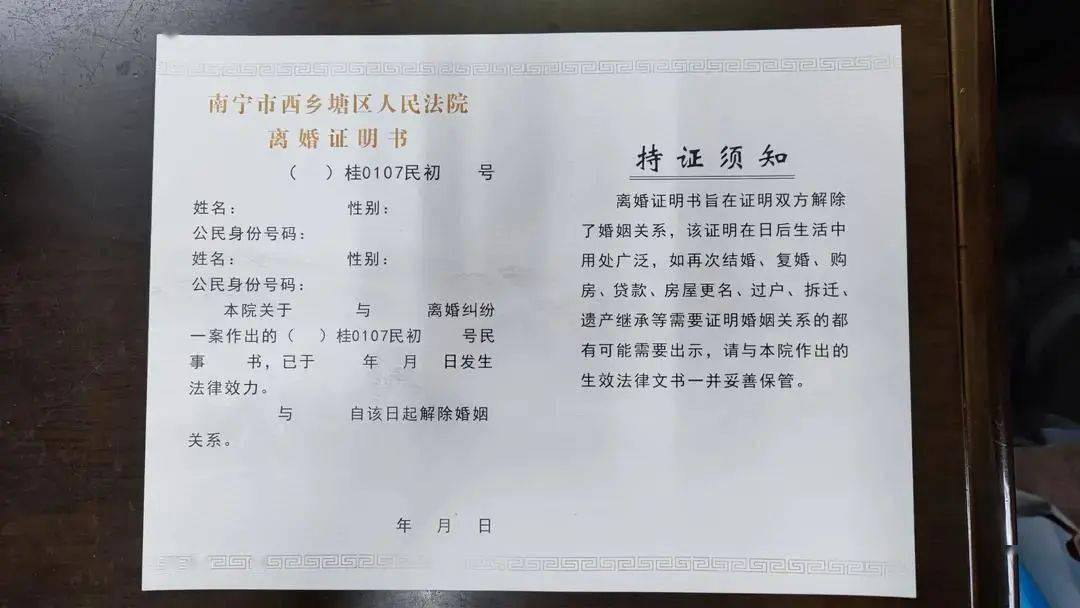 南宁市西乡塘区人民法院
离婚证明书
（ ）桂0107民初 号
姓名： 性别：
公民身份号码：
姓名： 性别：
公民身份号码：
本院关于 与 离婚纠纷
一案作出的（ ）桂0107民初 号民
事 书，已于 年 月 日发生
法律效力。
与 自该日起解除婚姻
关系。
年 月 日
持证须知
离婚证明书旨在证明双方解除
了婚姻关系，该证明在日后生活中
用处广泛，如再次结婚、复婚、购
房、贷款、房屋更名、过户、拆迁、
遗产继承等需要证明婚姻关系的都
有可能需要出示，请与本院作出的
生效法律文书一并妥善保管。